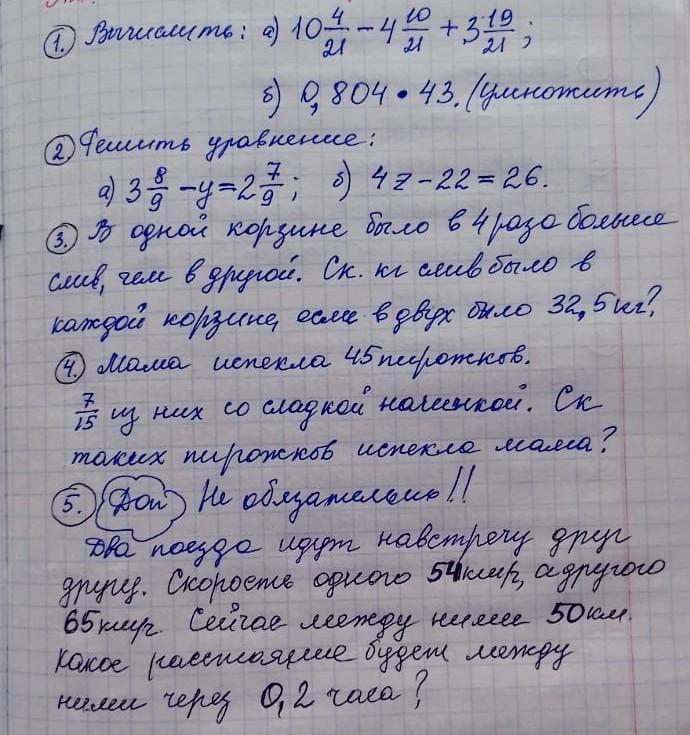 1. Вычислить: а) 10 4/21 − 4 10/21 + 3 19/21;
б) 0,804 • 43. (умножить)
2. Решить уравнение:
а) 3 8/9 − y = 2 7/9; б) 4z − 22 = 26.
3. В одной корзине было в 4 раза больше
слив, чем в другой. Ск. кг слив было в
каждой корзине, если в двух было 32,5 кг?
4. Мама испекла 45 пирожков.
7/15 из них со сладкой начинкой. Ск
таких пирожков испекла мама?
5. Доп Не обязательно!!
Два поезда идут навстречу друг
другу. Скорость одного 54 км/г, а другого
65 км/г. Сейчас между ними 50 км.
Какое расстояние будет между
ними через 0,2 часа?